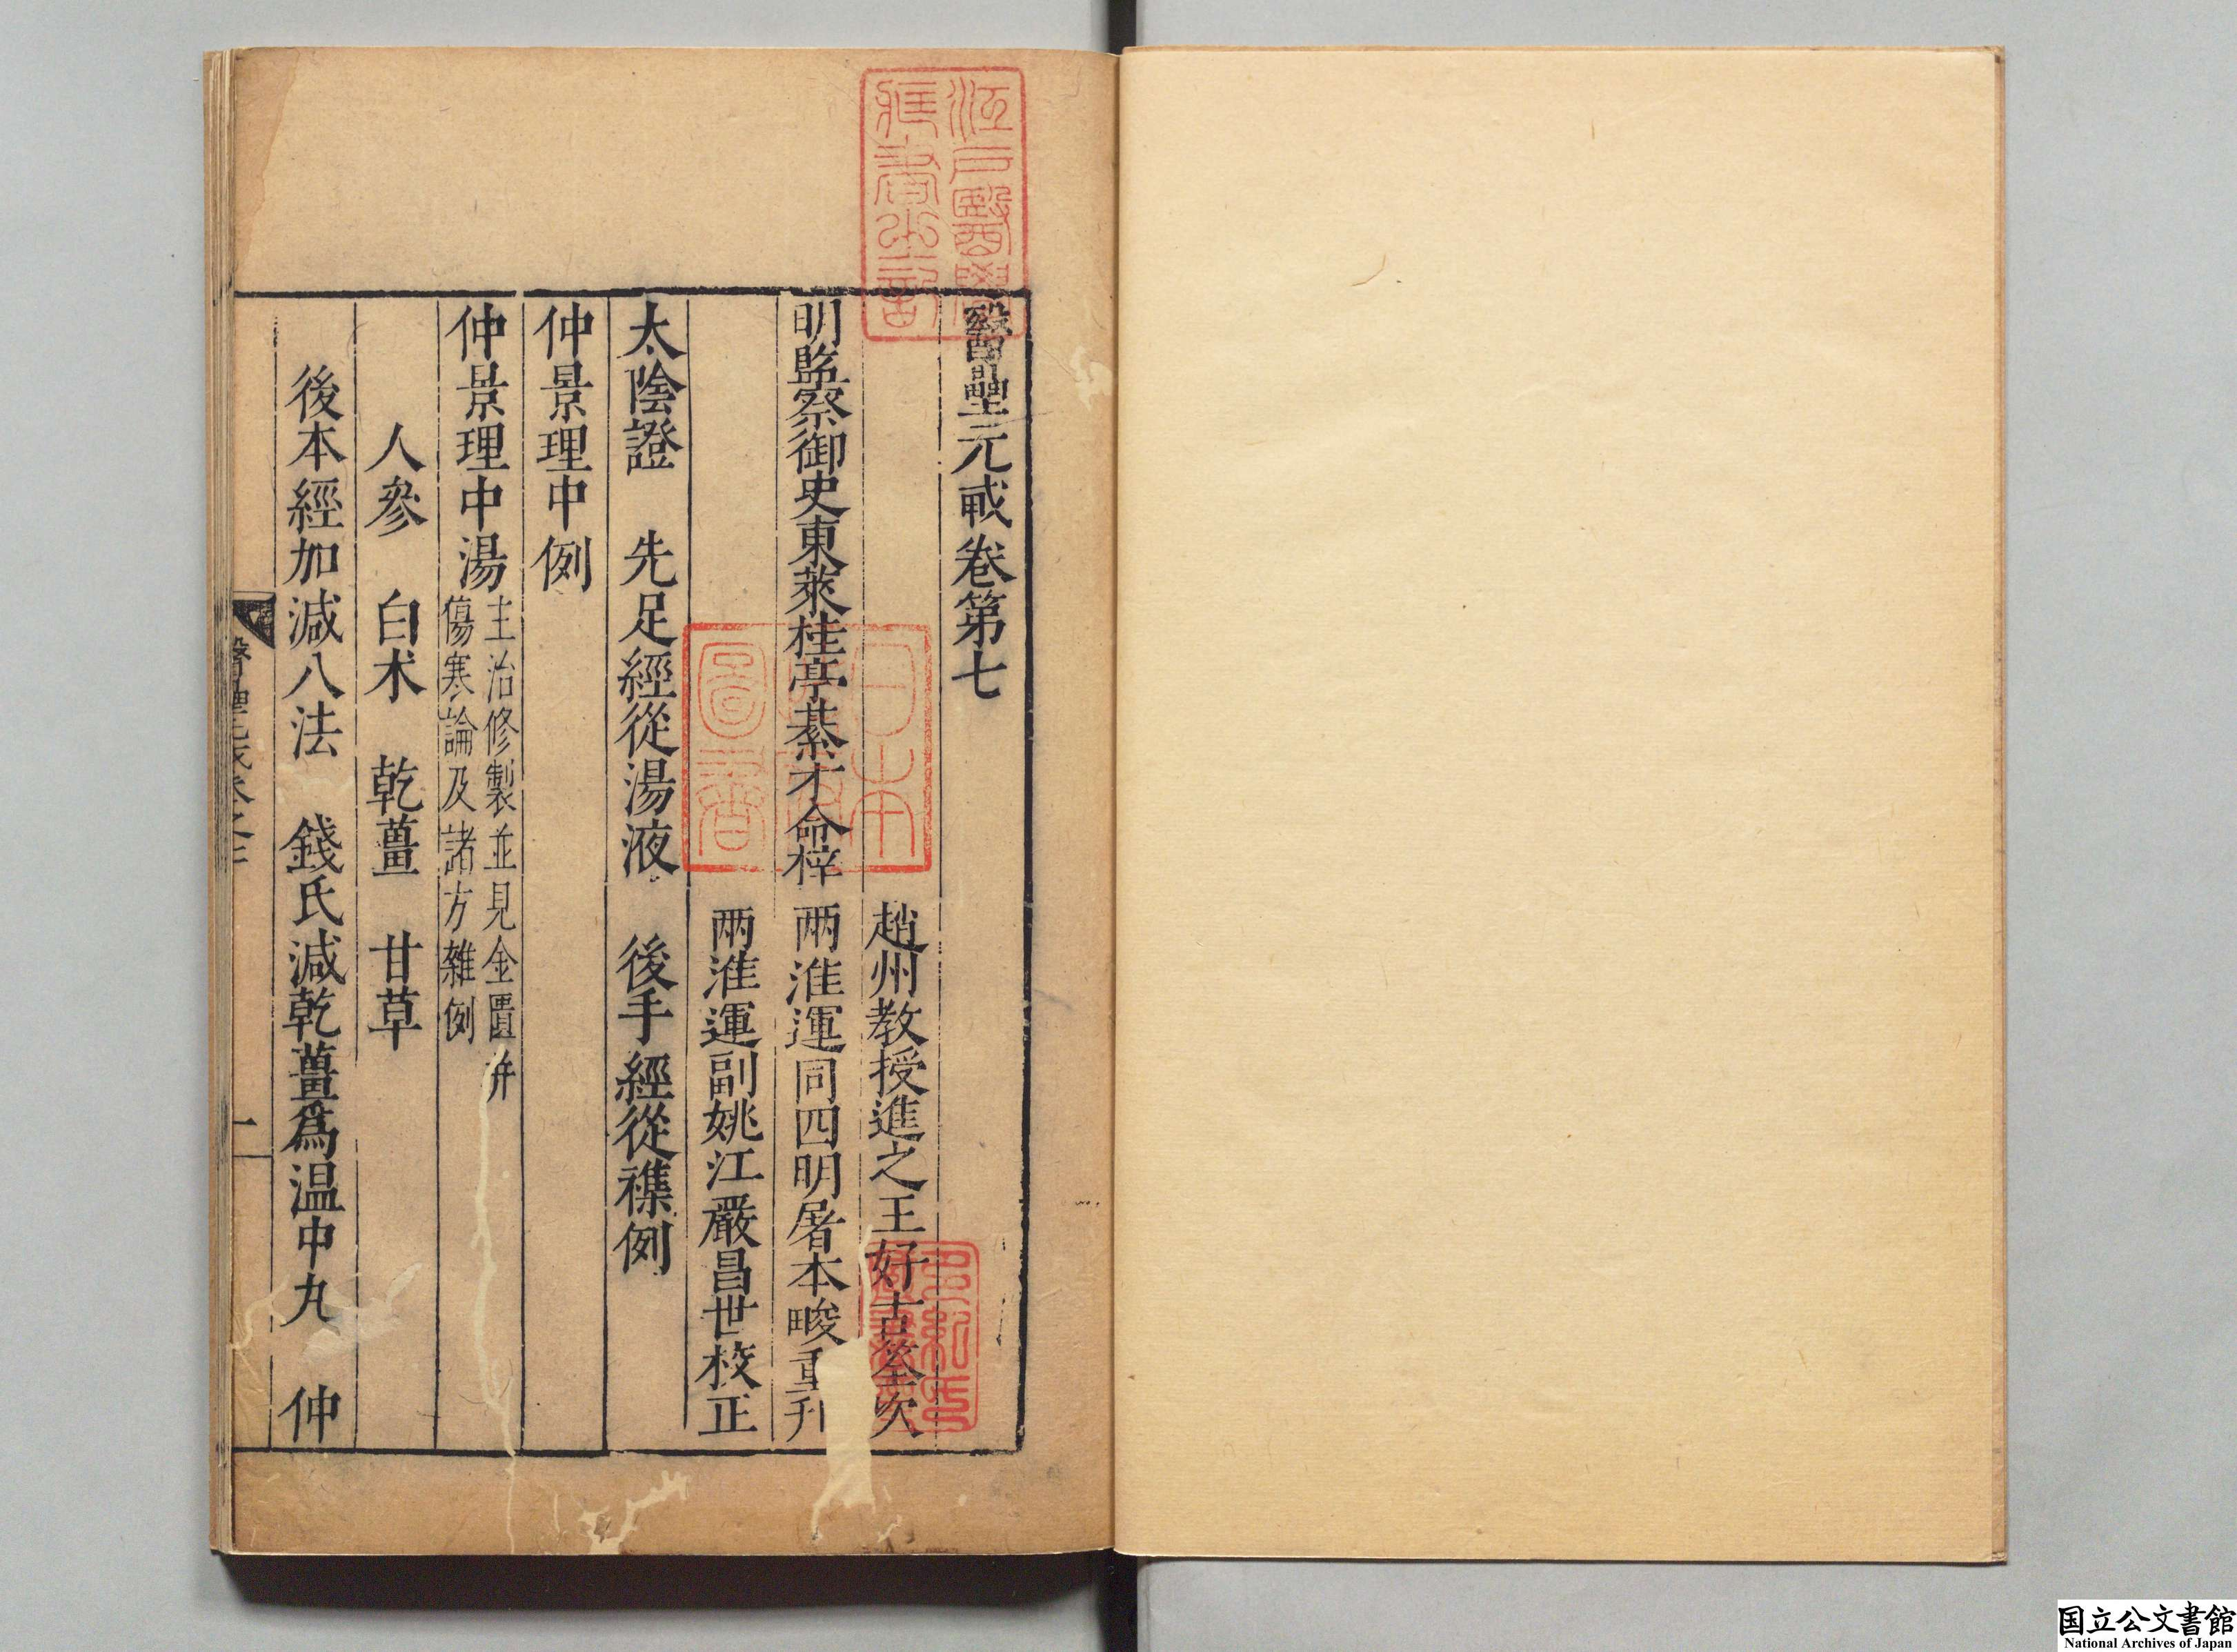 醫壘元戎卷第七
趙州教授進之王好古篹次
明監察御史東萊桂亭綦才命梓
兩淮運同四明屠本畯重刋
兩淮運副姚江嚴昌世校正
太陰證　先足經從湯液　後手經從襍例
仲景理中例
仲景理中湯
主治修製並見金匱并
傷寒論及諸方雜例
人參　白术　乾薑　甘草
後本經加減八法　錢氏減乾薑爲温中丸　仲
一
江戸醫學
藏書之記
日本
圖書
多紀氏
国立公文書館
National Archives of Japan